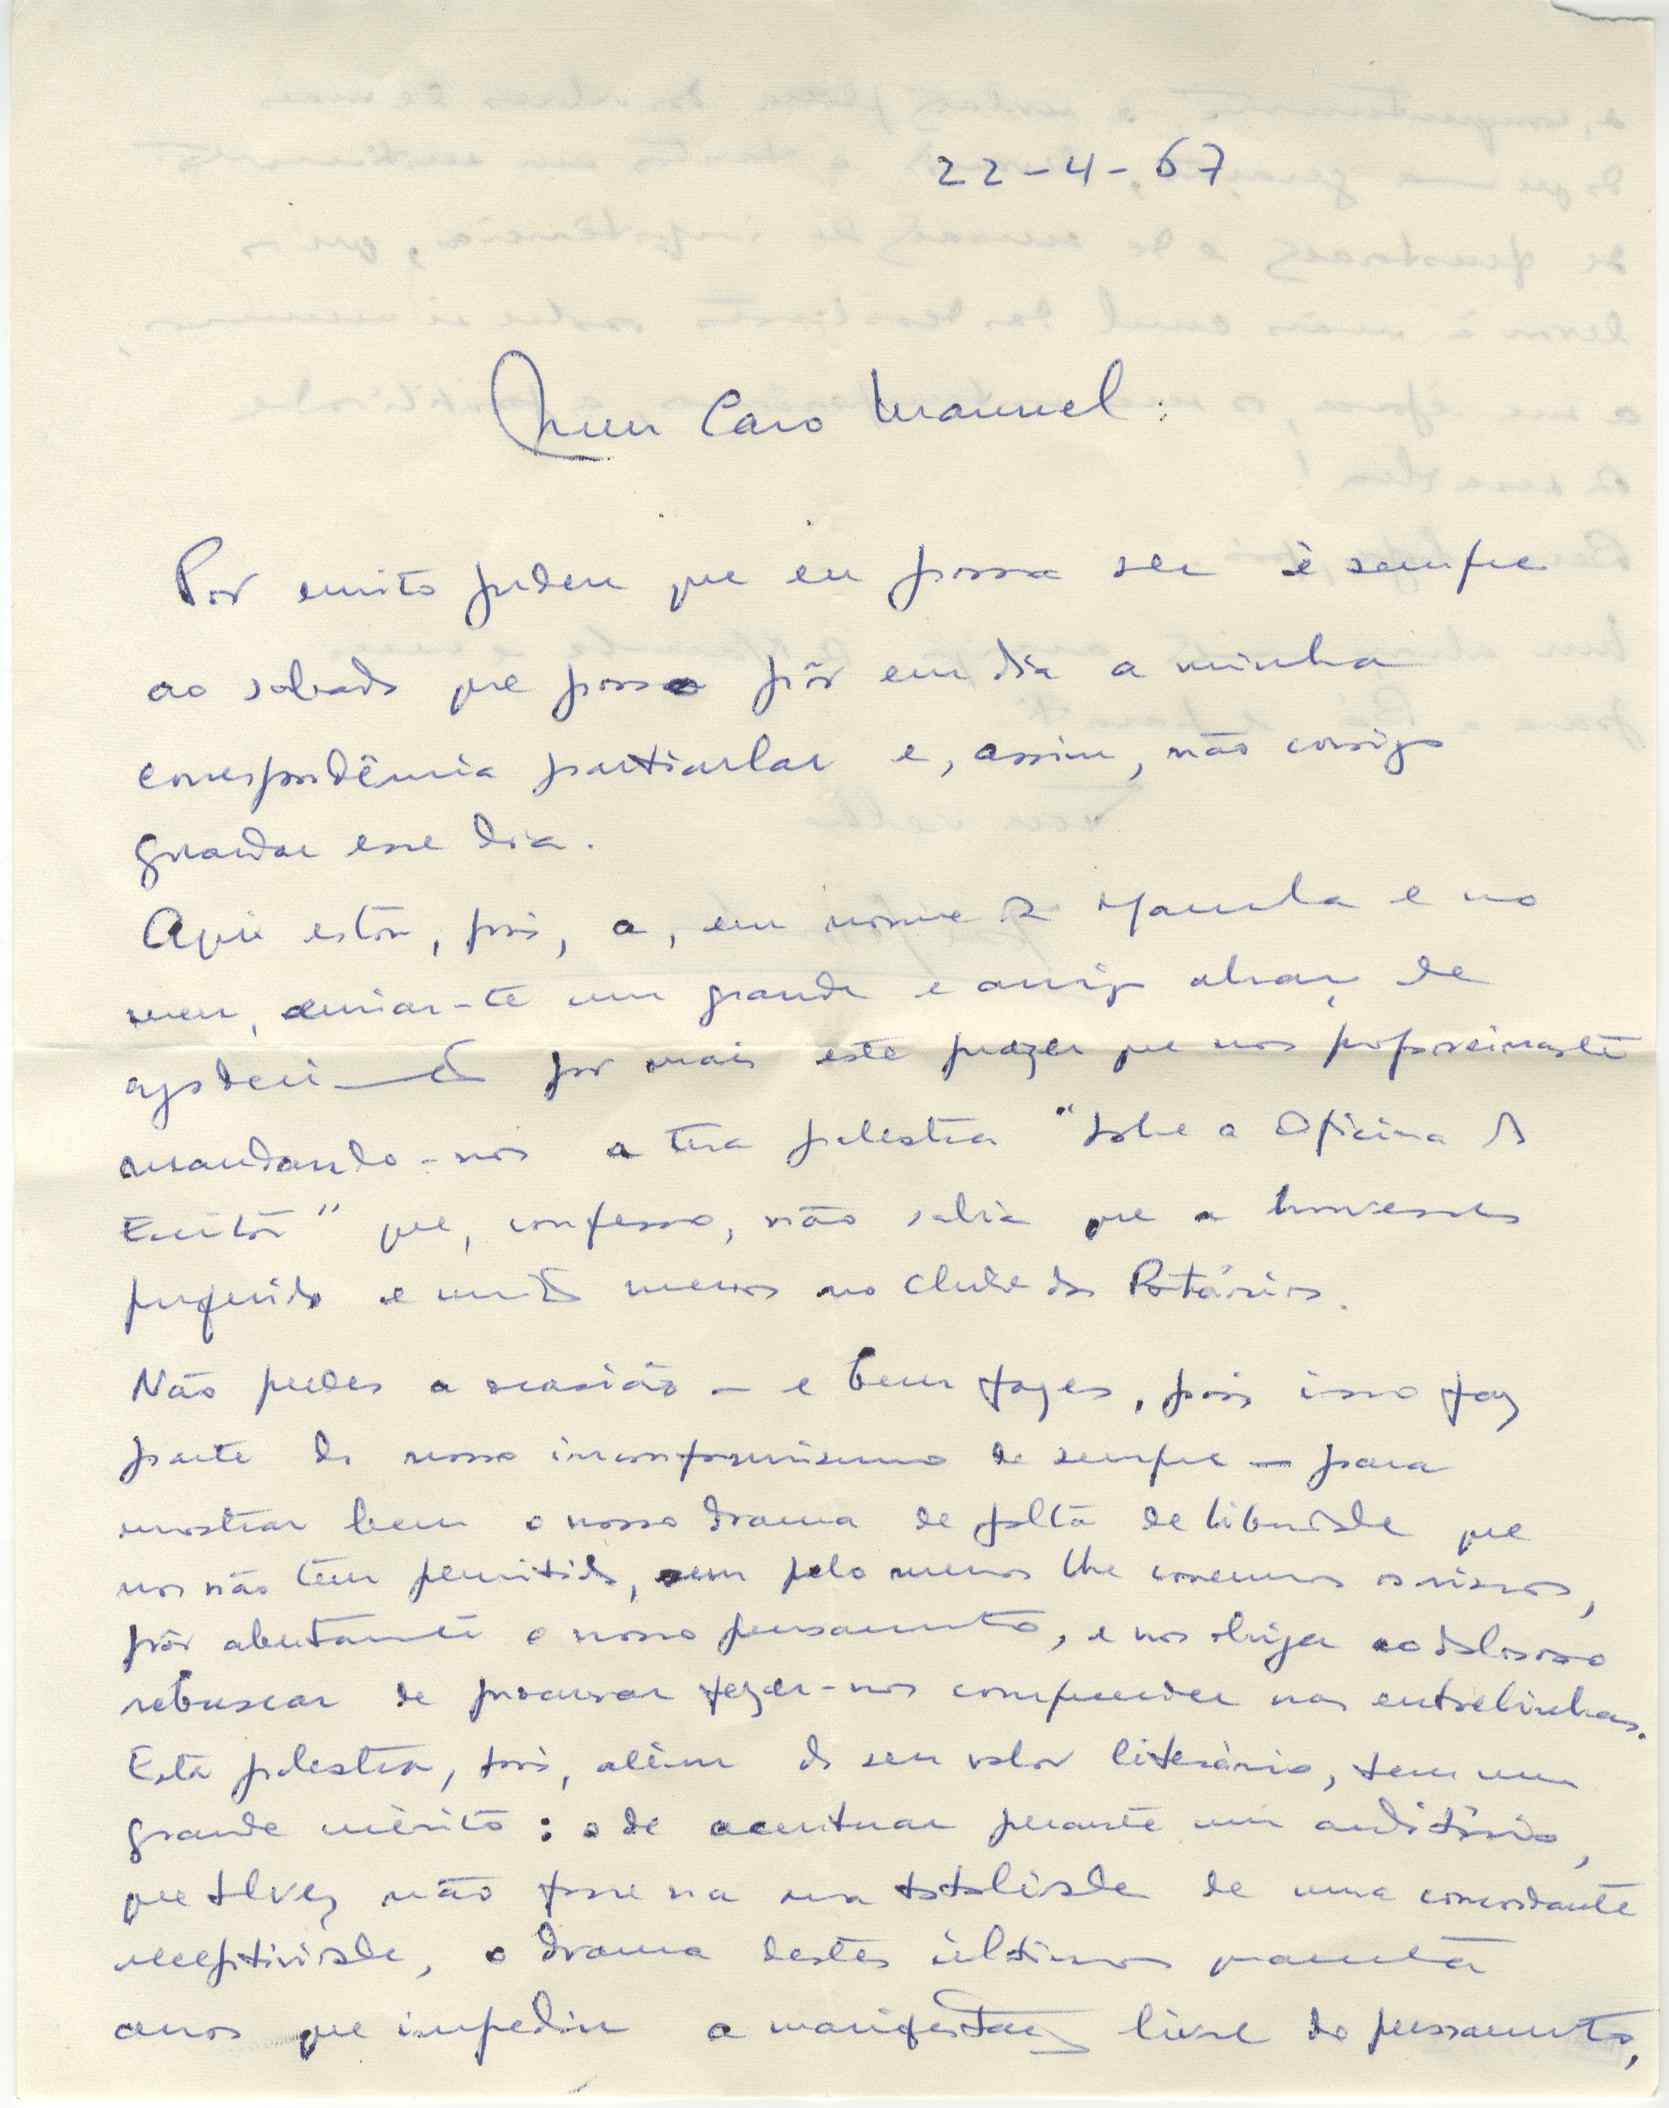 22-4-67
Meu Caro Manuel:
Por muito judeu que eu possa ser é sempre
ao sabado que posso pôr em dia a minha
correspondência particular e, assim, não consigo
guardar esse dia.
Aqui estou, pois, a, em nome da Manuela e no
meu, enviar-te um grande e amigo abraço de
agradecimento por mais este prazer que nos proporcionaste
mandando-nos a tua palestra "Sobre a Oficina do
Escritor" que, confesso, não sabia que a houvesses
proferido e muito menos no Clube dos Rotários.
Não perdes a ocasião - e bem fazes, pois isso faz
parte do nosso inconformismo de sempre - para
mostrar bem o nosso drama de falta de liberdade que
nos não tem permitido, sem pelo menos lhe corrermos os riscos,
pôr abertamente o nosso pensamento, e nos obriga ao doloroso
rebuscar de procurar fazer-nos compreender nas entrelinhas.
Esta palestra, pois, além do seu valor literário, tem um
grande mérito: o de acentuar perante um auditório,
que talvez não fosse na sua totalidade de uma concordante
receptividade, o drama destes últimos quarenta
anos que impediu a manifestação livre do pensamento,